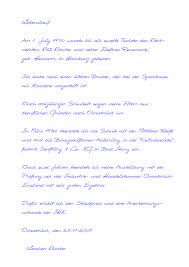 Lebenslauf
Am 1. July 1970 wurde ich als zweite Tochter des Elekt-
meisters Rolf Decker und seiner Ehefrau
geb. Hermann, in Hamburg geboren.
Ich habe noch einen älteren Bruder, der bei der Sparkasse
als Kassierer angestellt ist.
Nach dreijähriger Schulzeit zogen meine Eltern aus
beruflichen Gründen nach Osnabrück um.
Im März 1986 beendete ich die Schule mit der Mittleren Reife
und trat als Bürogehilfinnen-Auszubildende in der
& Co. KG in Bad ein.
Nach zwei Jahren beendete ich meine Ausbildung mit der
Prüfung vor der Industrie- und Handelskammer Osnabrück-
Emsland mit sehr gutem Ergebnis.
Dafür erhielt ich den und eine Anerkennungs-
urkunde der IHK.
Osnabrück, den 23.11.2009
Decker